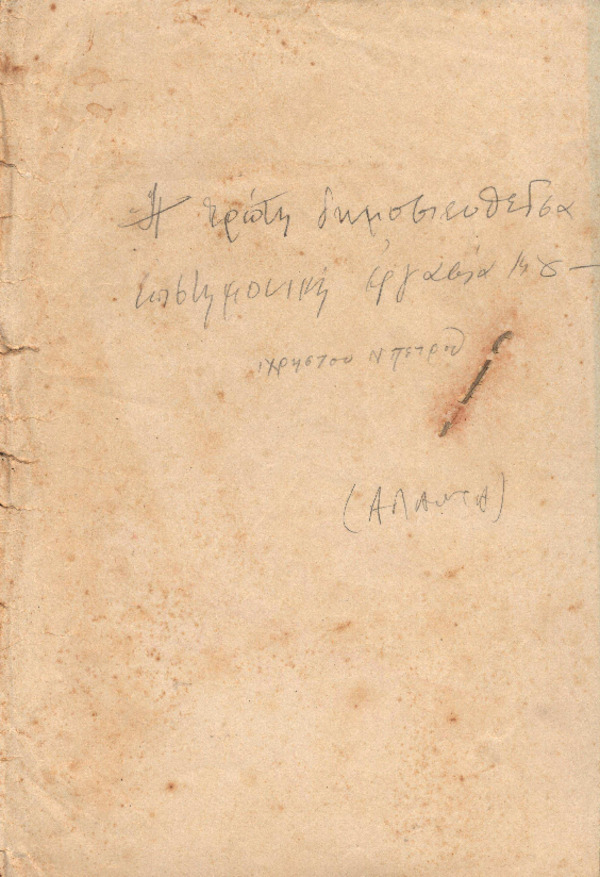 Η πρώτη δημοσιευθείσα
επιστημονική εργασία μου —
Χρήστου Ν Πέτρου